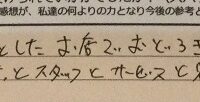 感想が、私達の何よりの力となり今後の参考と
とした お店で おどろき
とスタッフとサービスと